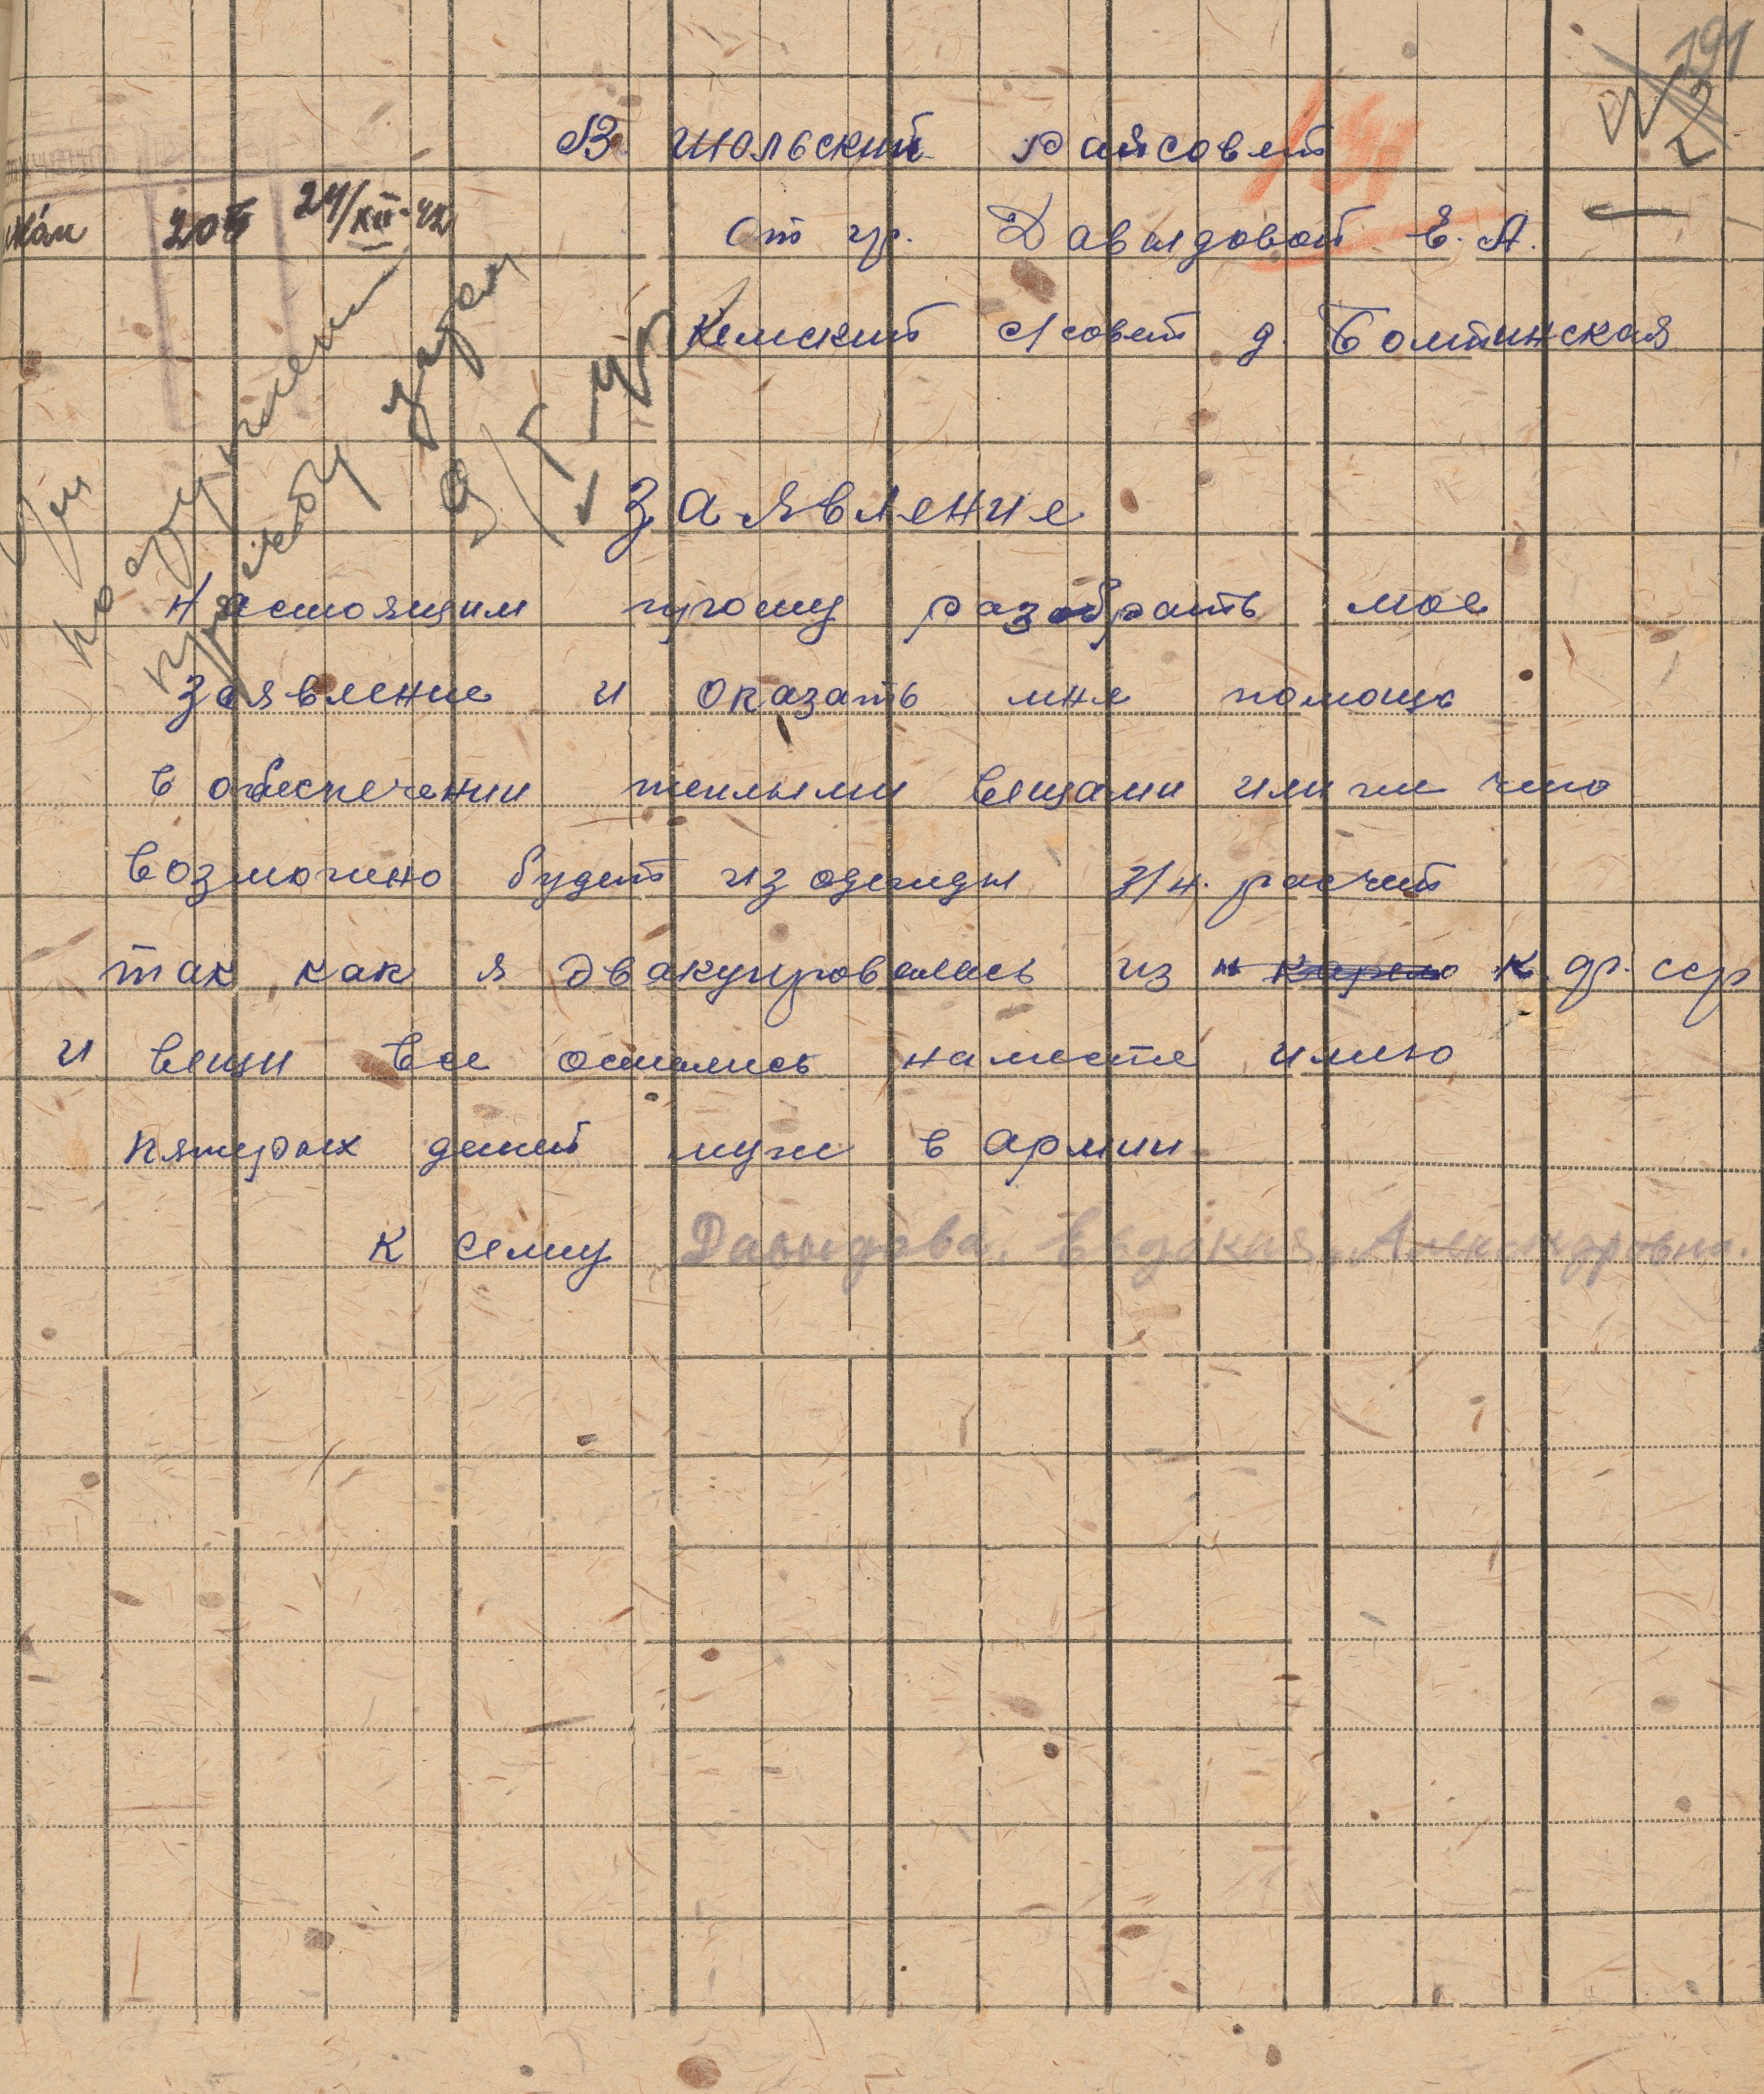 191
2
В Шольский Райсовет
191
24/XII-42
От гр. Давыдовой Е. А.
Кемский с/совет д. Болтинская
9/I-43
Заявление
Настоящим прошу разобрать мое
заявление и оказать мне помощь
в обеспечении теплыми вещами или же что
возможно будет из одежды з/н. расчет
так как я эвакуировалась из к. ф. сср
и вещи все остались наместе имею
пятерых детей муж в армии
К сему Давыдова Евдокия Александровна.